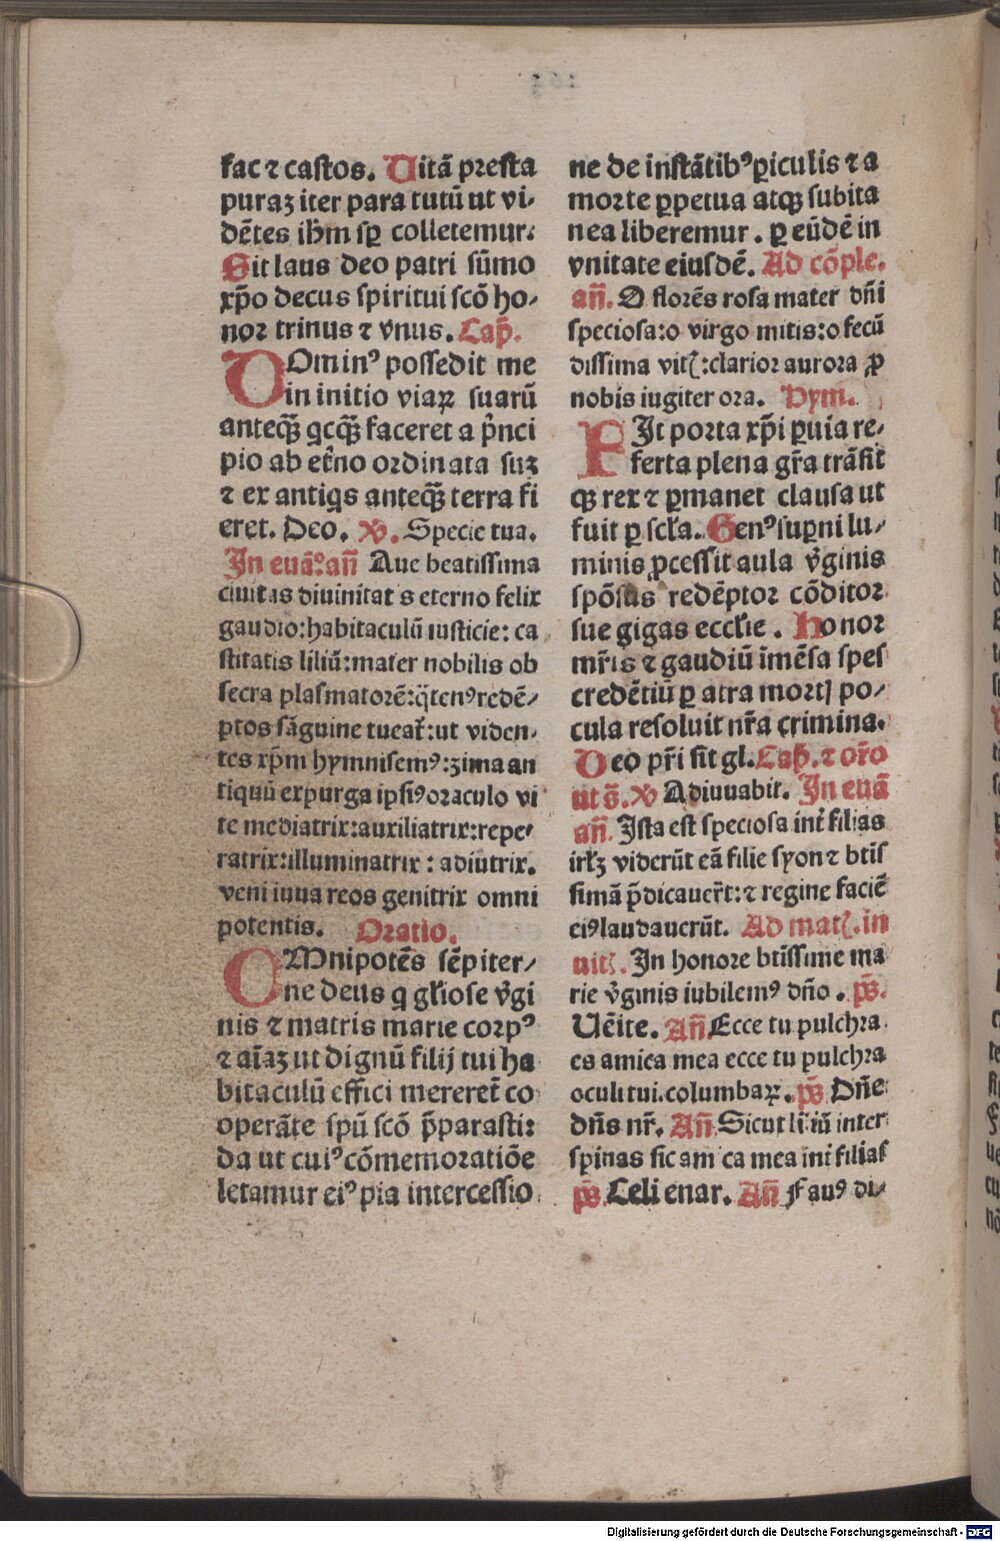 fac ⁊ castos. Uitā presta
puraꝫ iter para tutū ut vi⸗
dētes ihm̄ sꝑ colletemur:
Sit laus deo patri sūmo
xp̄o decus spiritui scō ho⸗
nor trinus ⁊ vnus. Cap̄.
DOminꝰ possedit me
in initio viaꝝ suarū
anteqꝫ̄ qcqꝫ̄ faceret a p̄nci
pio ab et̄no ordinata suꝫ
⁊ ex antiqs anteqꝫ̄ terra fi
eret. Deo. ℣. Specie tua.
In euā.º an̄ Aue beatissima
ciuitas diuinitatis eterno felix
gaudio:habitaculū iusticie: ca
stitatis liliū:mater nobilis ob
secra plasmatorē:q̈tenꝰ redē⸗
ptos sāguine tueat̄:ut viden⸗
tes xp̄m hymnisemꝰ:zima an
tiquū expurga ipsiꝰ oraculo vi
te mediatrix:auxiliatrix:repe⸗
ratrix:illuminatrix : adiutrix.
veni iuua reos genitrix omni
potentis. Oratio.
OMnipotēs sēpiter⸗
ne deus q gl̄iose v̄gi
nis ⁊ matris marie corpꝰ
⁊ aīaꝫ ut dignū filij tui ha
bitaculū effici mereret̄ co
operāte spū scō p̄parasti:
da ut cuiꝰ cōmemoratiōe
letamur eiꝰ pia intercessio
ne de instātibꝰ ꝑiculis ⁊ a
morte ꝑpetua atqꝫ subita
nea liberemur . ꝑ eūdē in
vnitate eiusdē. Ad cōple.
an̄. O florēs rosa mater dn̄i
speciosa:o virgo mitis:o fecū
dissima vitꝭ:clarior aurora ꝓ
nobis iugiter ora. Hym.
FIt porta xp̄i ꝑuia re⸗
ferta plena gr̄a trāsit
qꝫ rex ⁊ ꝑmanet clausa ut
fuit ꝑ scl̄a. Genꝰ suꝑni lu⸗
minis ꝓcessit aula v̄ginis
spōsus redēptor cōditor
sue gigas eccl̄ie . Honor
mr̄is ⁊ gaudiū īmēsa spes
credētiū ꝑ atra mortꝭ po⸗
cula resoluit nr̄a crimina.
Deo pr̄i sit gl. Cap̄. ⁊ or̄o
ut s̄. ℣ Adiuuabit. In euā
an̄. Ista est speciosa int̄ filias
irl̄ꝫ viderūt eā filie syon ⁊ bt̄is
simā p̄dicauer̄t:⁊ regine faciē
eiꝰ laudauerūt. Ad matꝭ.in
uitꝭ. In honore bt̄issime ma
rie v̄ginis iubilemꝰ dn̄o . ps̄.
Uēite. An̄ Ecce tu pulchra
es amica mea ecce tu pulchra
oculi tui.columbaꝝ. ps̄ Dn̄e
dn̄s nr̄. An̄ Sicut liliū inter
spinas sic amica mea int̄ filias
ps̄ Celi enar. An̄ Fauꝰ di⸗
Digitalisierung gefördert durch die Deutsche Forschungsgemeinschaft - DFG